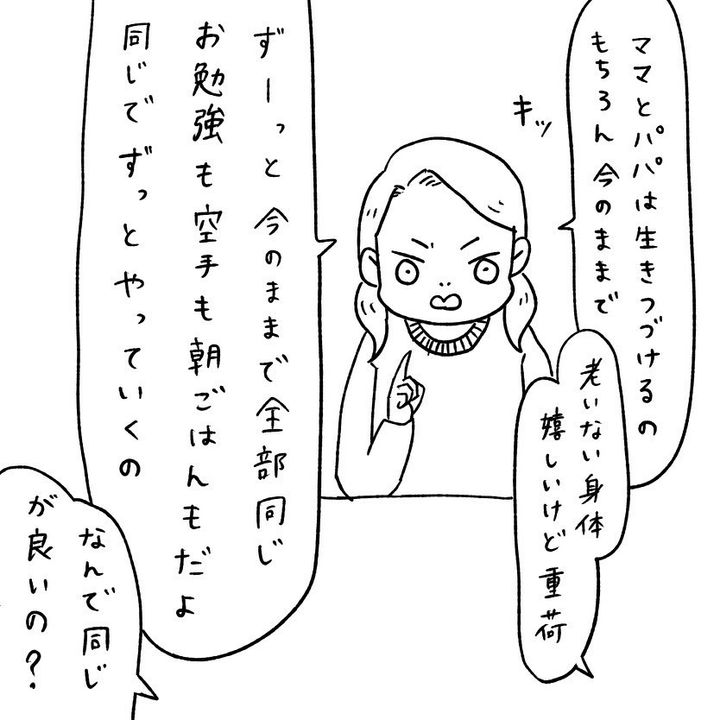 ママとパパは生きつづけるの
もちろん今のままで
キッ
老いない身体
嬉しいけど重荷
ずーっと今のままで全部同じ
お勉強も空手も朝ごはんもだよ
同じでずっとやっていくの
なんで同じ
が良いの？